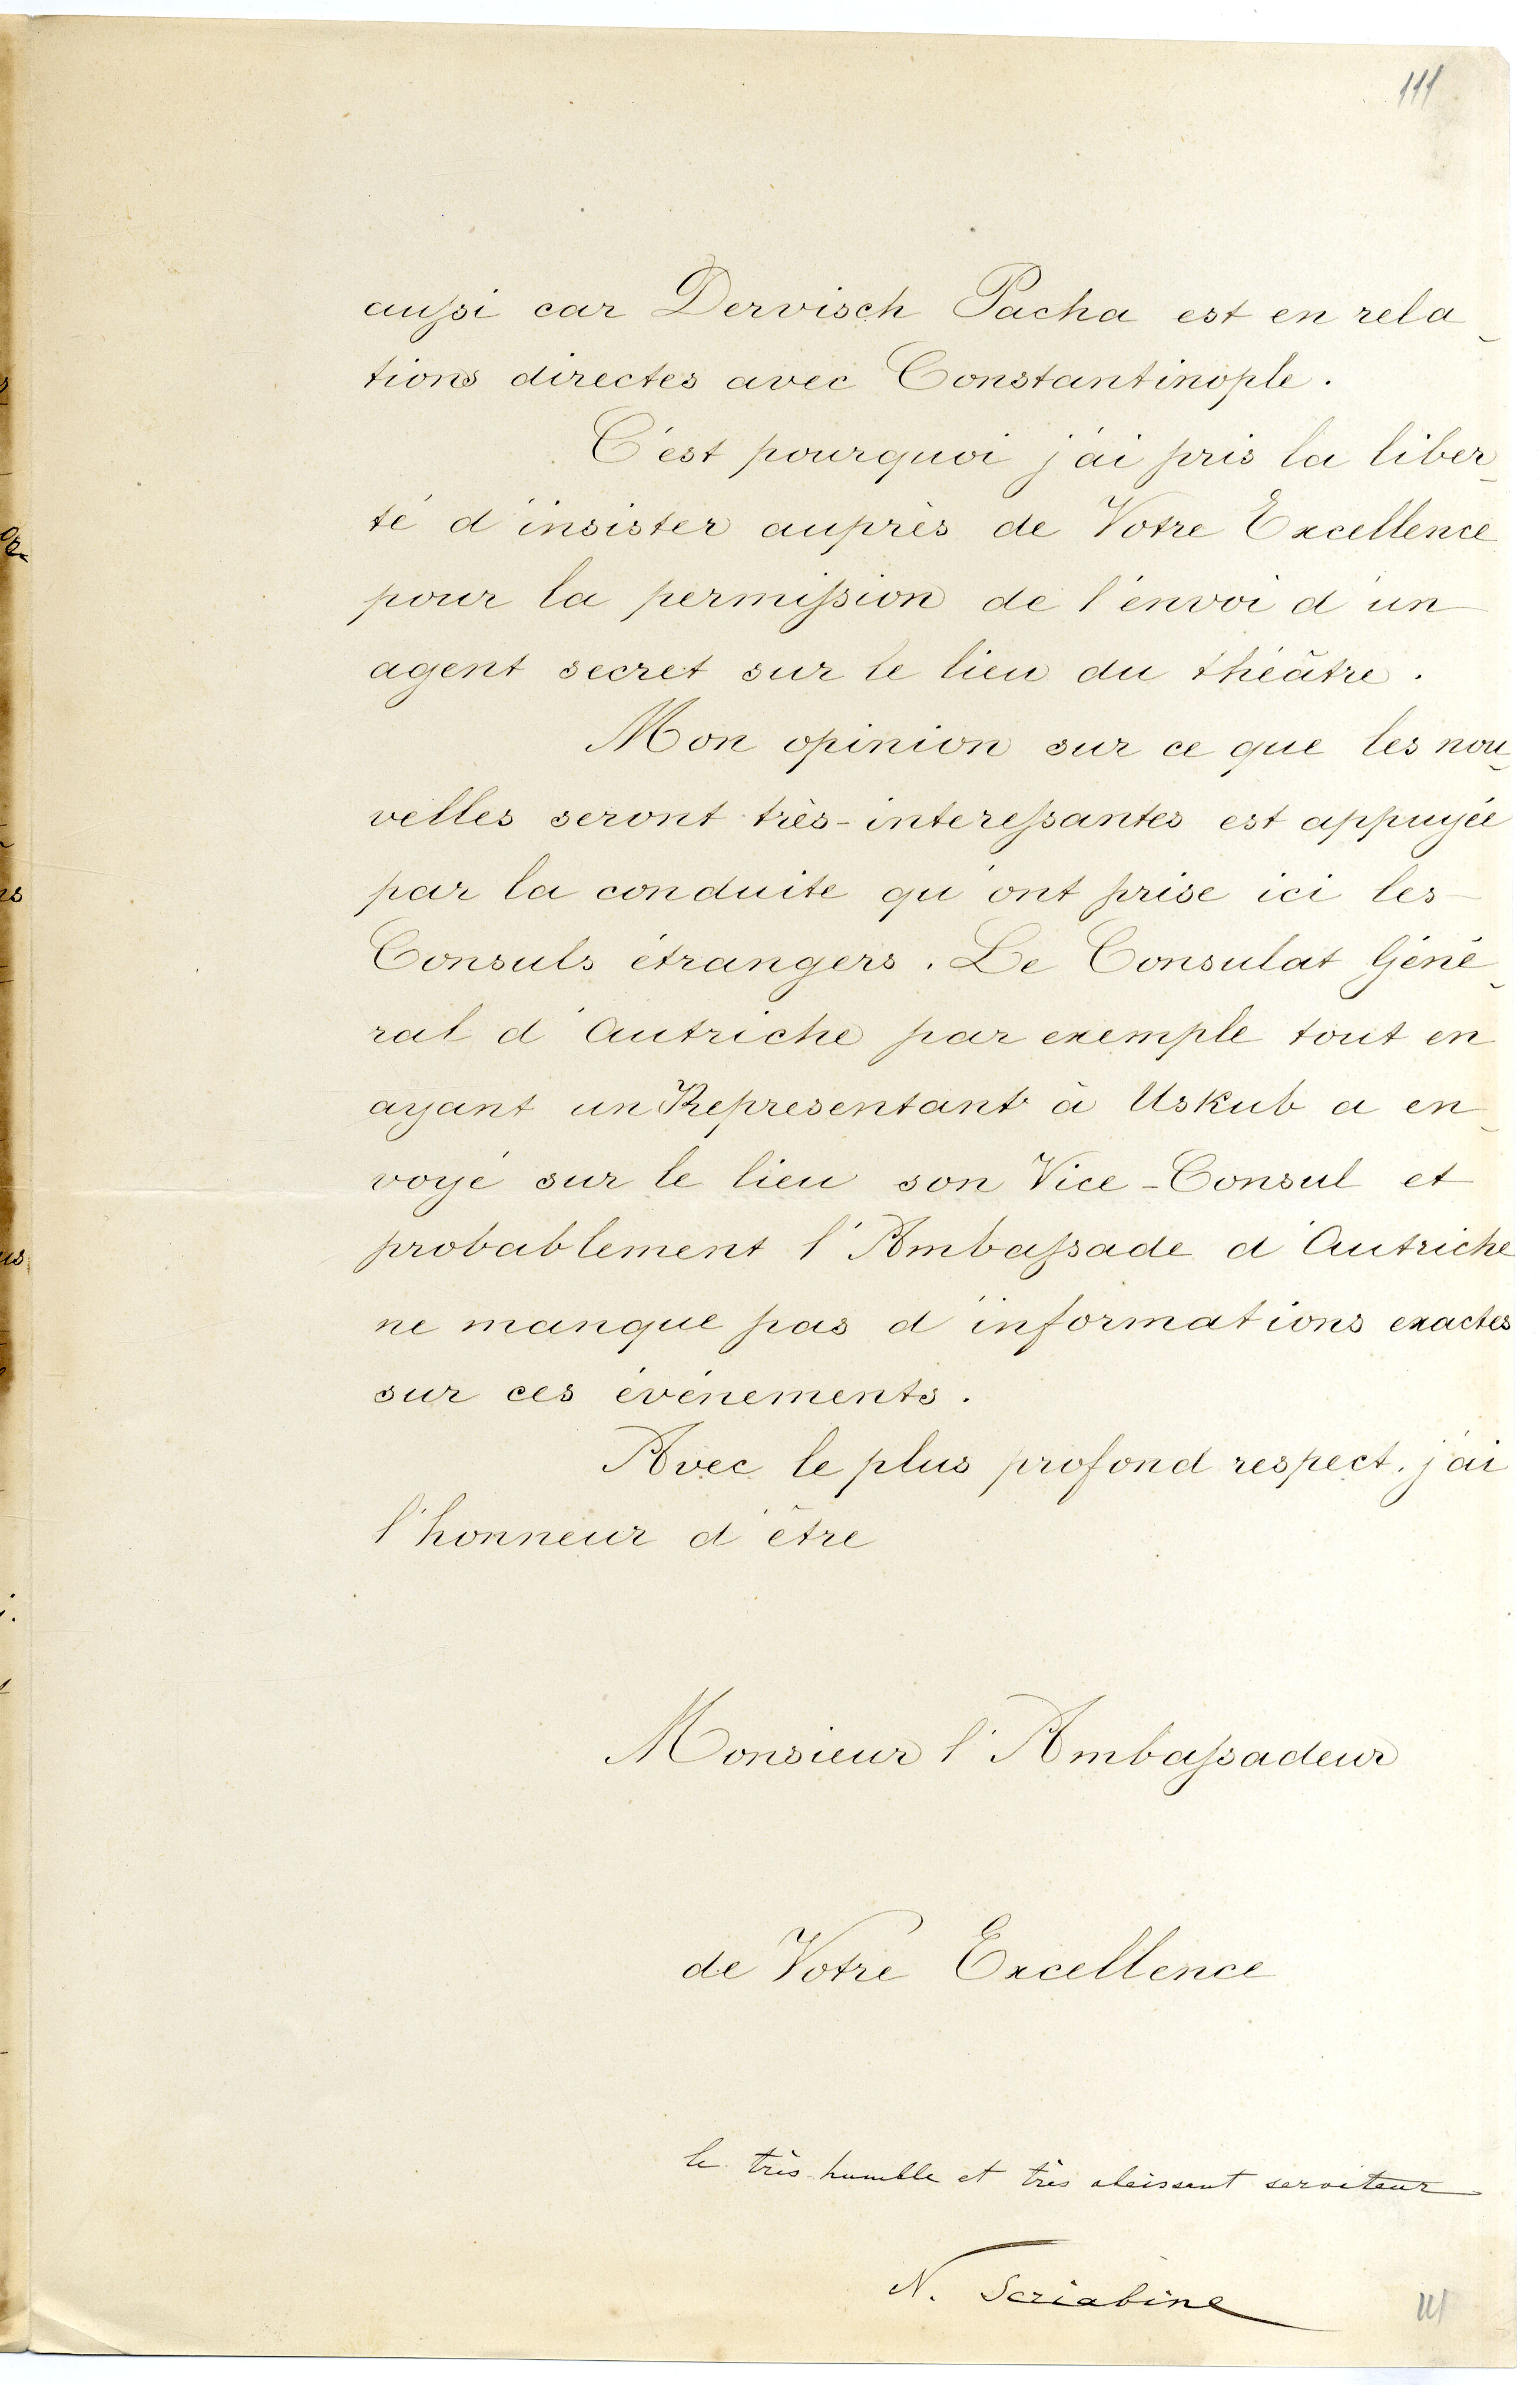 111
aussi car Dervisch Pacha est en rela-
tions directes avec Constantinople.
C'est pourquoi j'ai pris la liber-
té d'insister auprès de Votre Excellence
pour la permission de l'envoi d'un
agent secret sur le lieu du théâtre.
Mon opinion sur ce que les nou-
velles seront très-interessantes est appuyée
par la conduite qu'ont prise ici les
Consuls étrangers. Le Consulat Géné-
ral d'Autriche par exemple tout en
ayant un Representant à Uskub a en-
voyé sur le lieu son Vice-Consul et
probablement l'Ambassade d'Autriche
ne manque pas d'informations exactes
sur ces événements.
Avec le plus profond respect, j'ai
l'honneur d'être
Monsieur l'Ambassadeur
de Votre Excellence
le très-humble et très obéissant serviteur
N. Scriabine
111